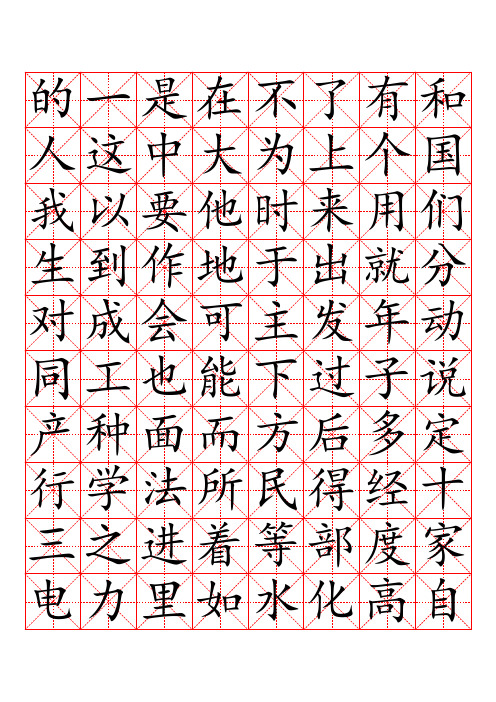 的一是在不了有和
人这中大为上个国
我以要他时来用们
生到作地于出就分
对成会可主发年动
同工也能下过子说
产种面而方后多定
行学法所民得经十
三之进着等部度家
电力里如水化高自